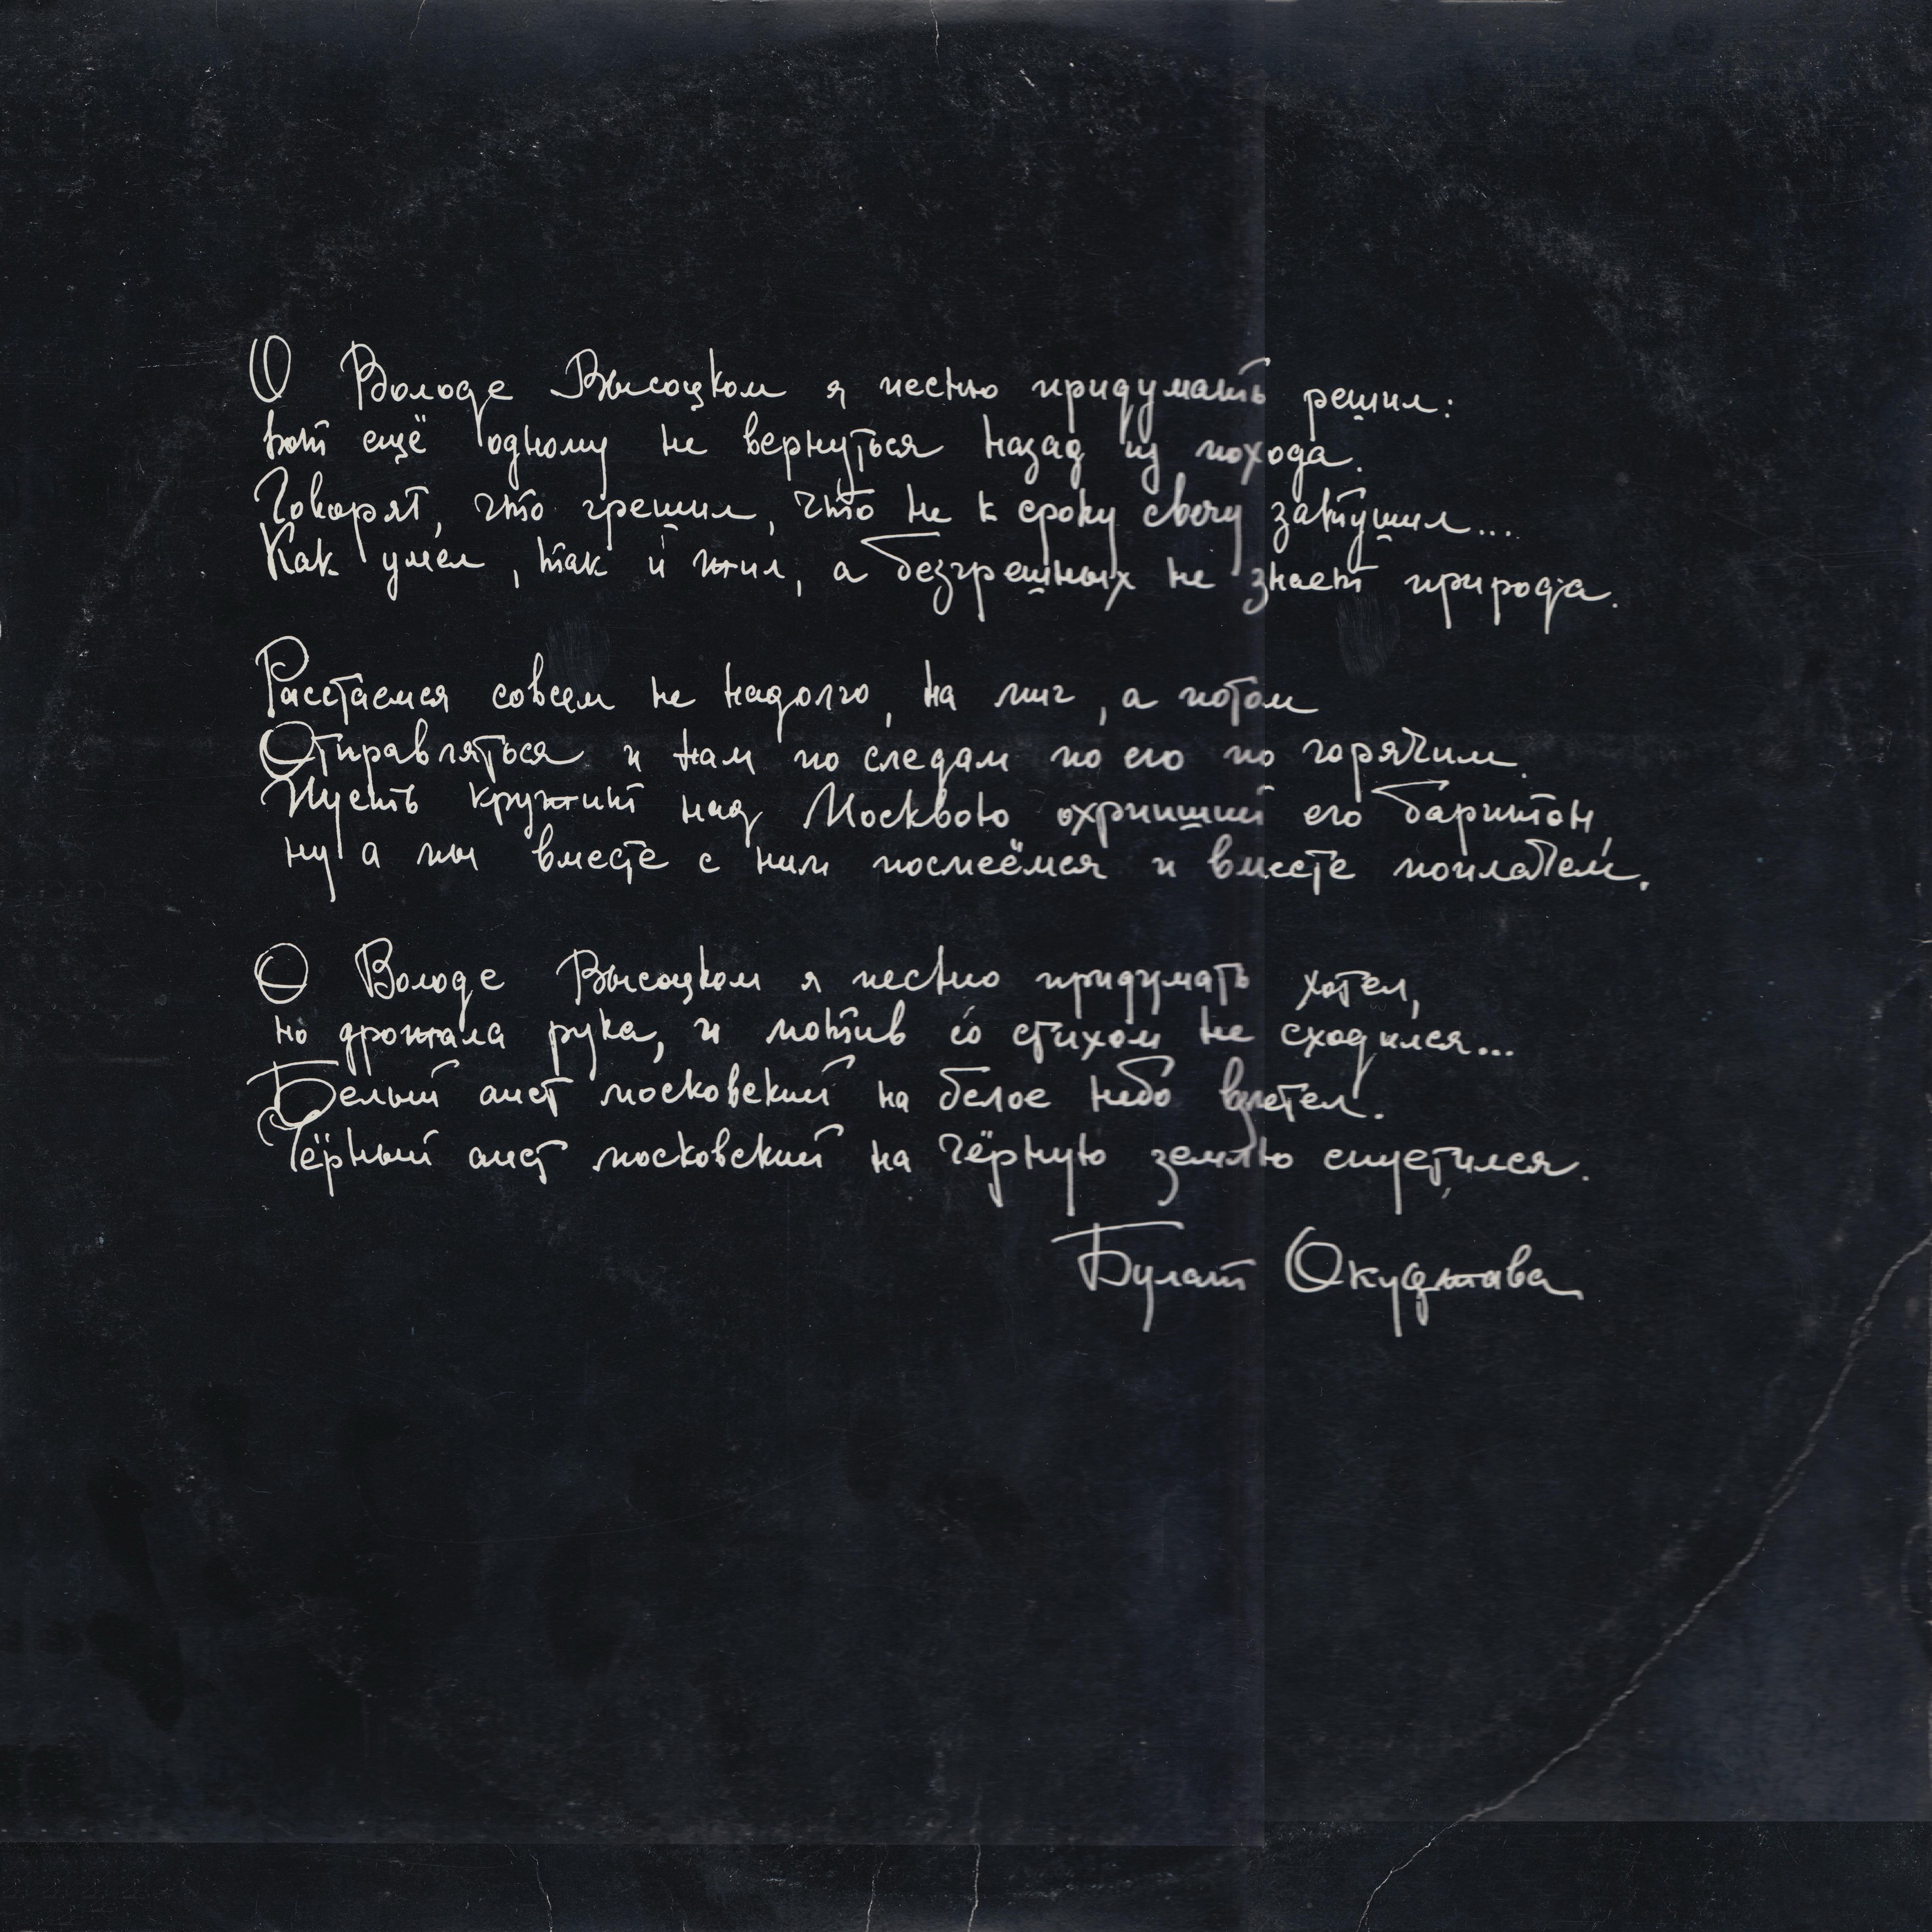 О Володе Высоцком я песню придумать решил:
вот ещё одному не вернуться назад из похода.
Говорят, что грешил, что не к сроку свечу затушил...
Как умел, так и жил, а безгрешных не знает природа.
Расстаёмся совсем не надолго, на миг, а потом
Отправляться и нам по следам по его по горячим.
Пусть кружит над Москвою охрипший его баритон,
ну а мы вместе с ним посмеёмся и вместе поплачем.
О Володе Высоцком я песню придумать хотел,
но дрожала рука, и мотив со стихом не сходился...
Белый аист московский на белое небо взлетел.
Чёрный аист московский на чёрную землю спустился.
Булат Окуджава